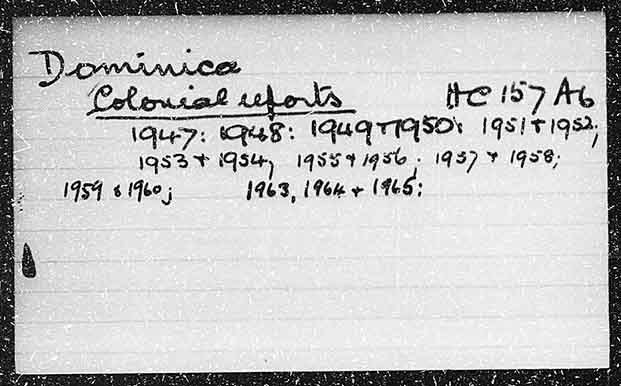 Dominica
Colonial reports HC 157 A6
1947: 1948: 1949+1950: 1951+1952;
1953+1954, 1955+1956. 1957+1958;
1959 & 1960; 1963, 1964+1965: